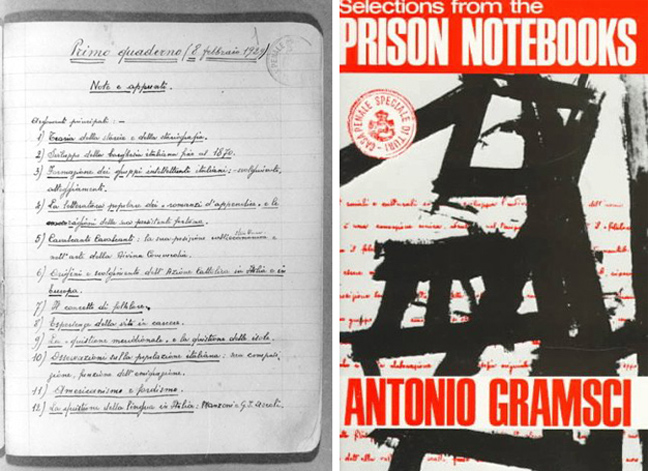 Primo quaderno (8 febbraio 1929)
Note e appunti.
Argomenti principali: –
1) Teoria della storia e della storiografia.
2) Sviluppo della borghesia italiana fino al 1870.
3) Formazione dei gruppi intellettuali italiani: – svolgimento,
atteggiamenti.
4) La letteratura popolare dei "romanzi d'appendice" e le
ragioni della sua persistente fortuna.
5) Cavalcante Cavalcanti: la sua posizione nella struttura e
nell'arte della Divina Commedia.
6) Origini e svolgimento dell'Azione Cattolica in Italia e in
Europa.
7) Il concetto di folklore.
8) Esperienze della vita in carcere.
9) La "quistione meridionale" e la quistione delle isole.
10) Osservazioni sulla popolazione italiana: sua composi-
zione, funzione dell'emigrazione.
11) Americanismo e fordismo.
12) La quistione della lingua in Italia: Manzoni e G. I. Ascoli.
Selections from the
PRISON NOTEBOOKS
CASA PENALE SPECIALE DI TURI
ANTONIO GRAMSCI